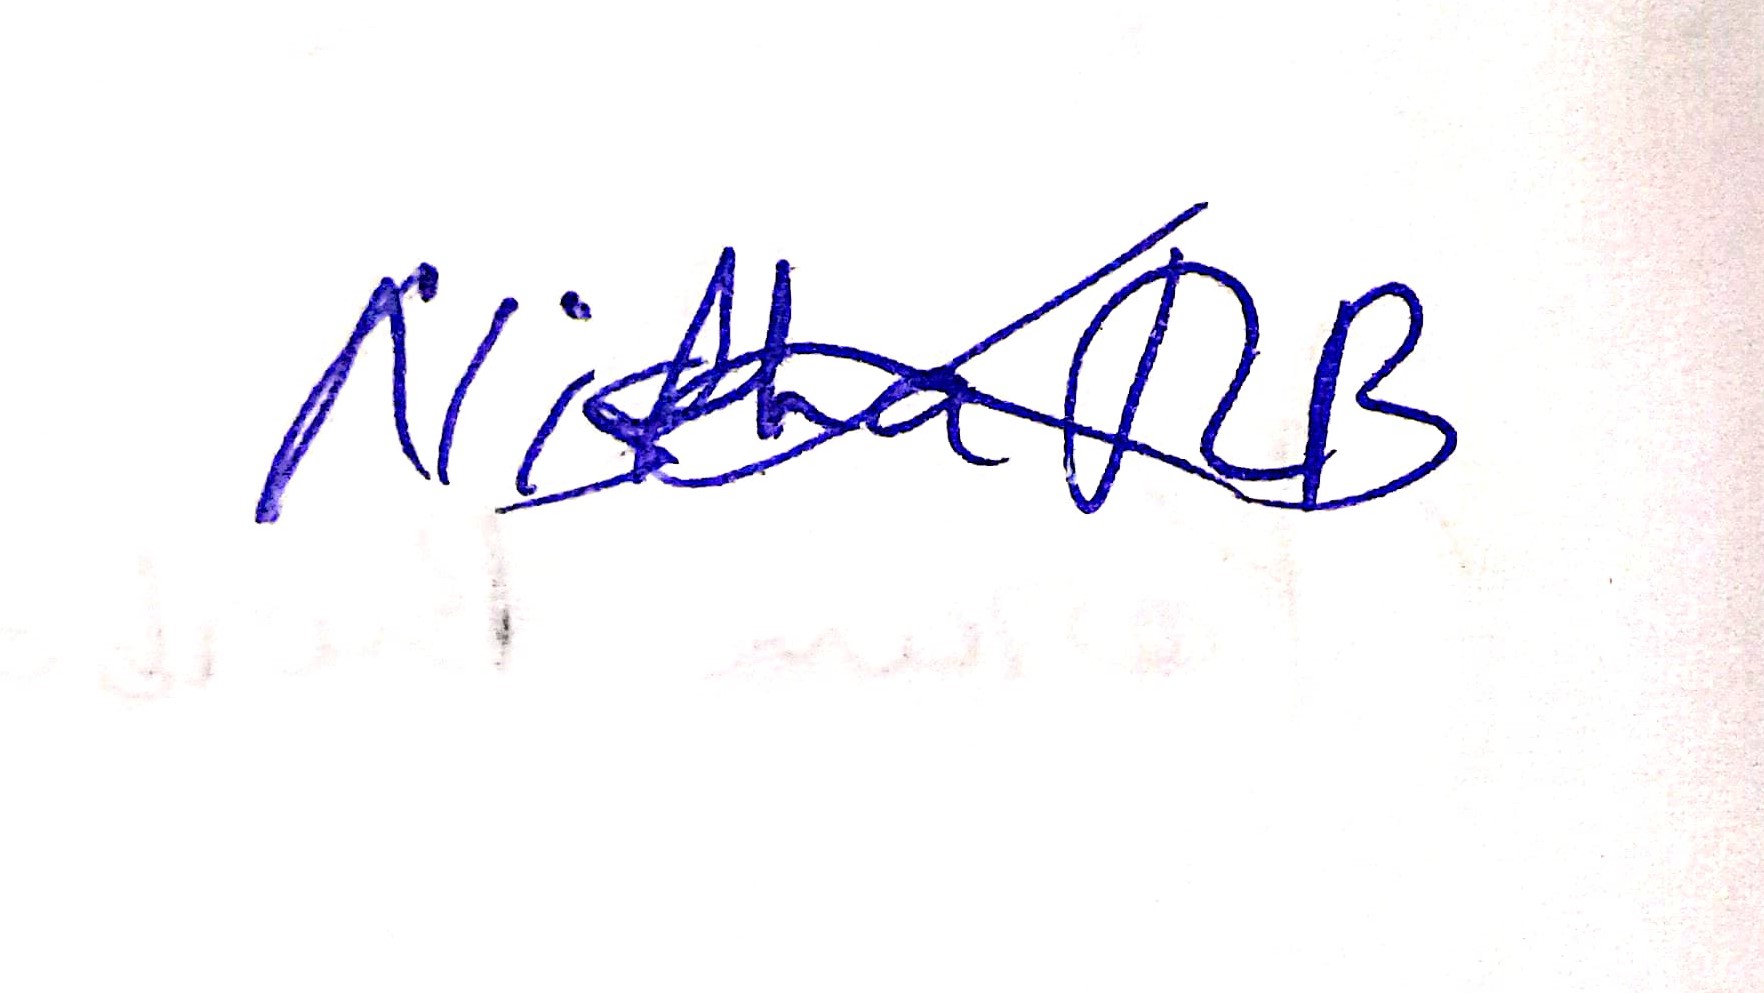 Nisha RB